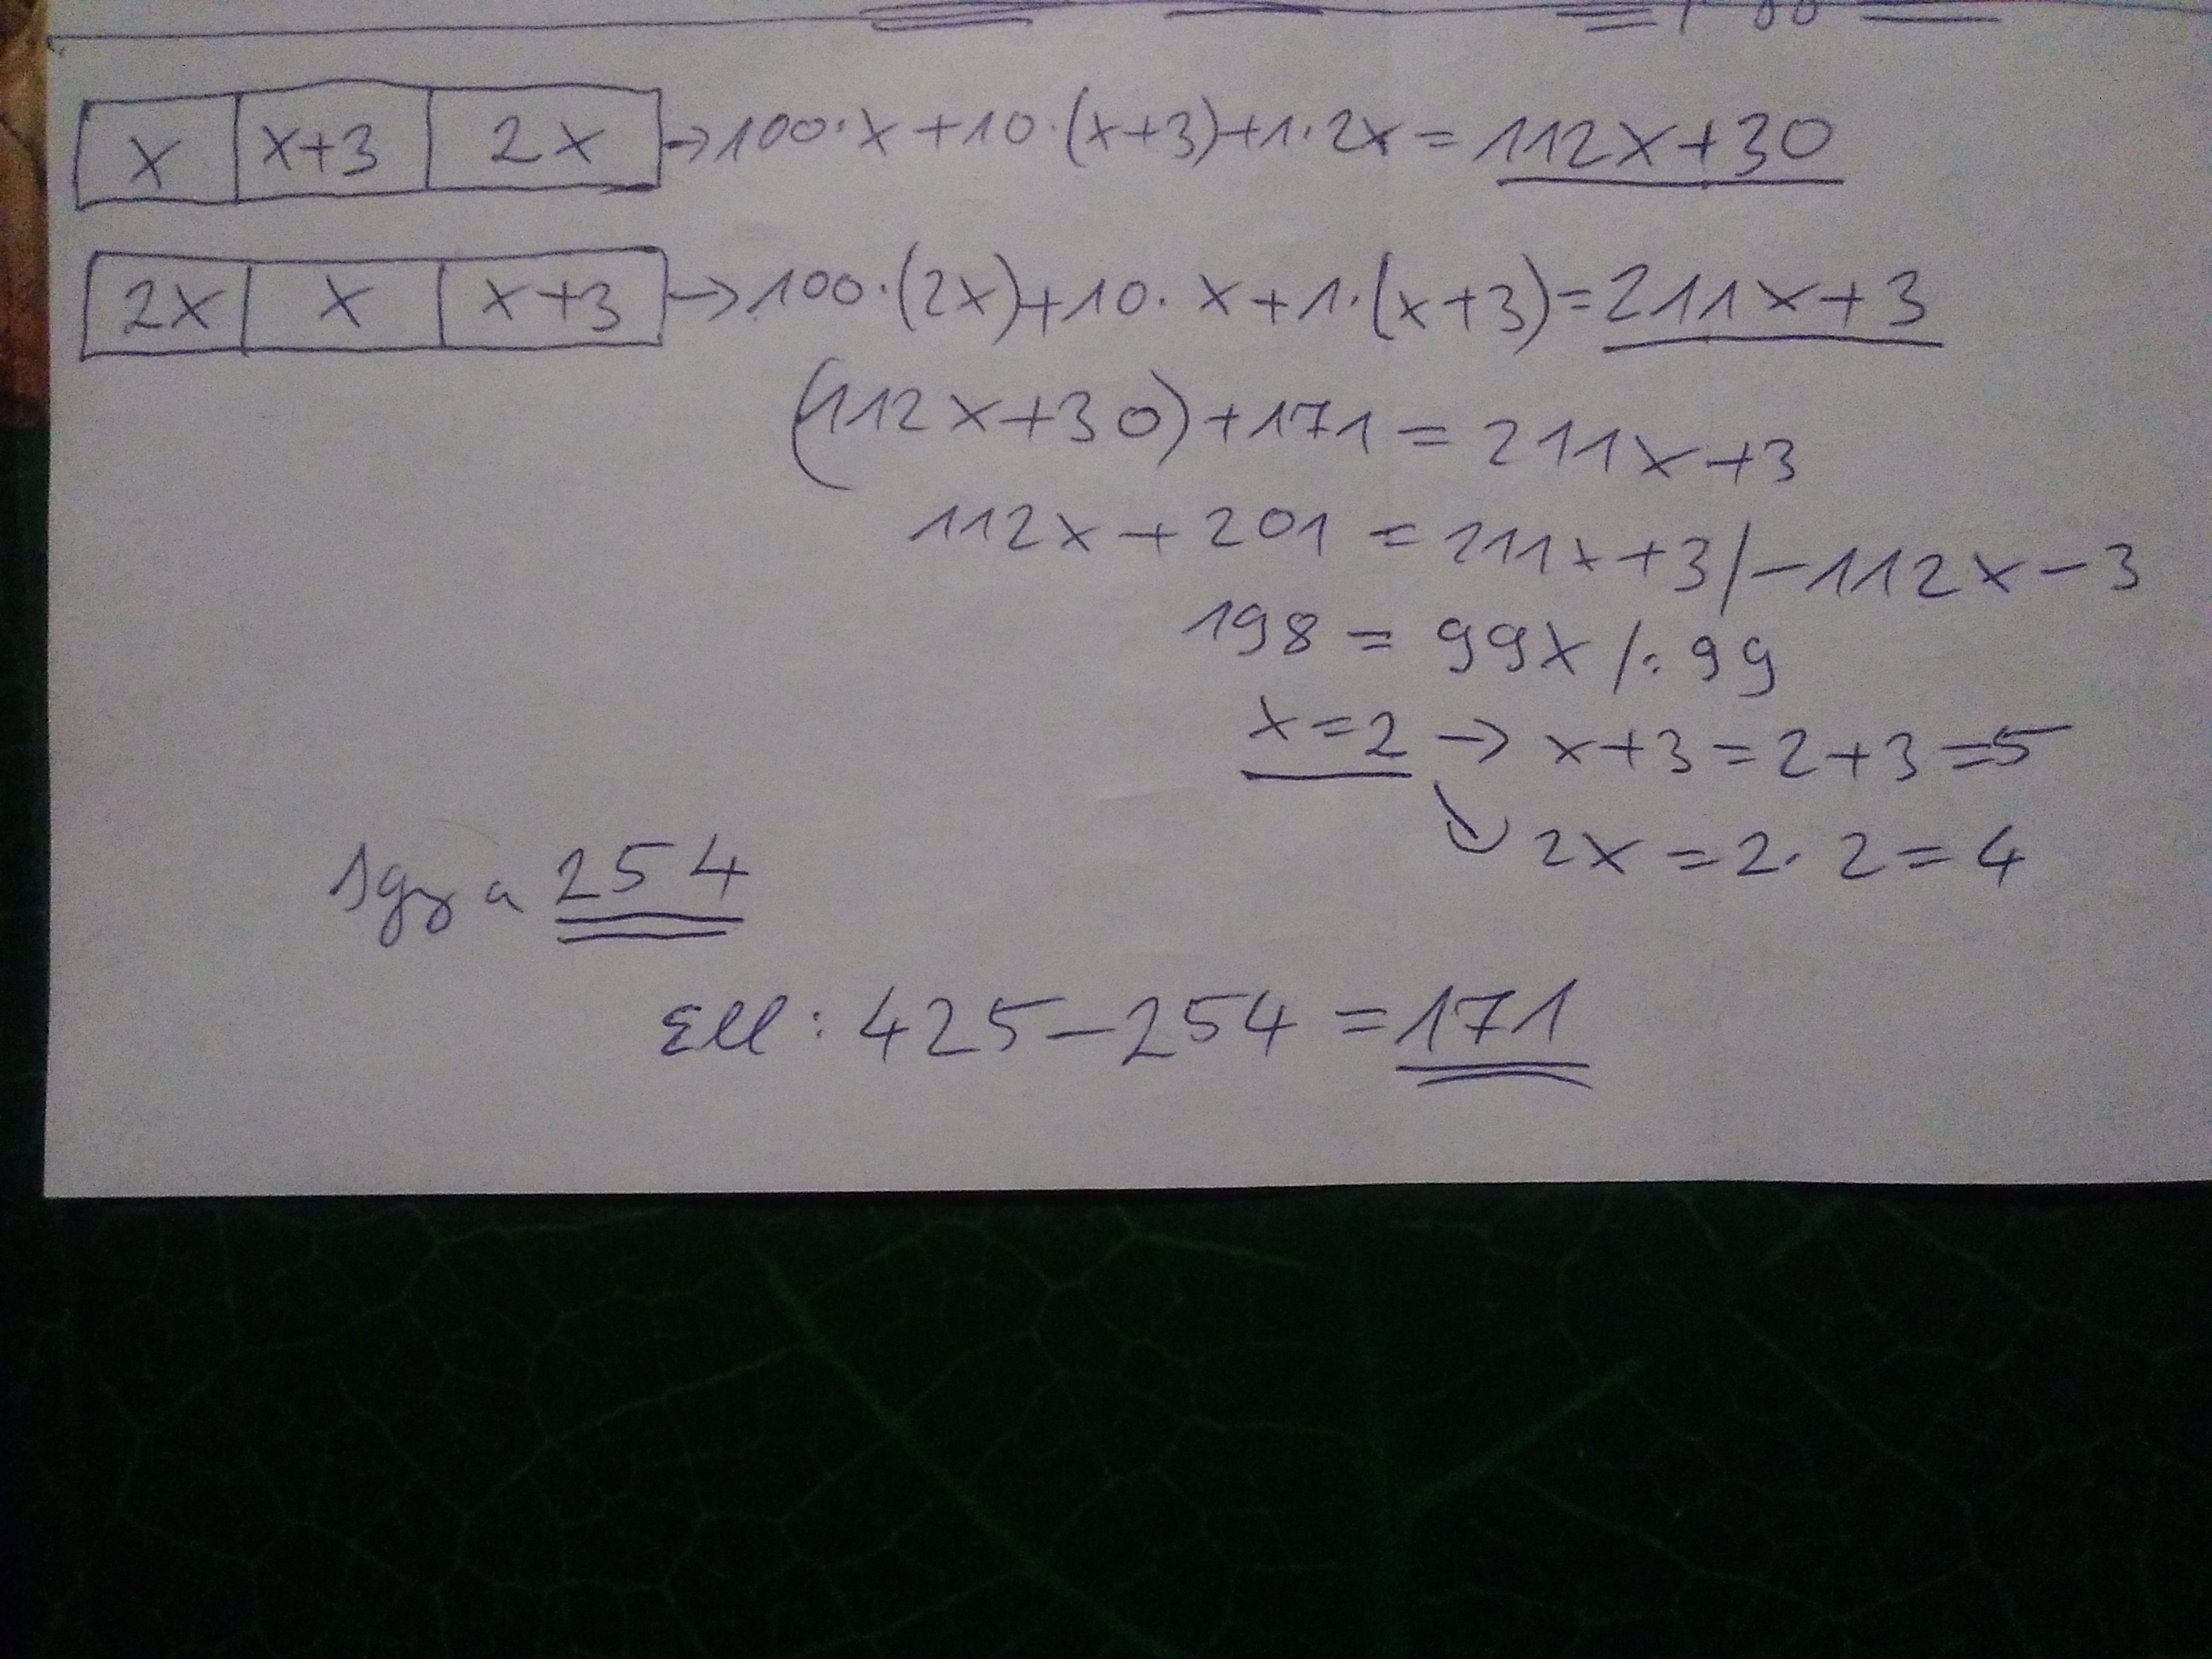 x | x+3 | 2x → 100·x+10·(x+3)+1·2x = 112x+30
2x | x | x+3 → 100·(2x)+10·x+1·(x+3)=211x+3
(112x+30)+171=211x+3
112x+201=211x+3/-112x-3
198=99x/:99
x=2 → x+3=2+3=5
2x=2·2=4
Igy a 254
Ell: 425-254=171